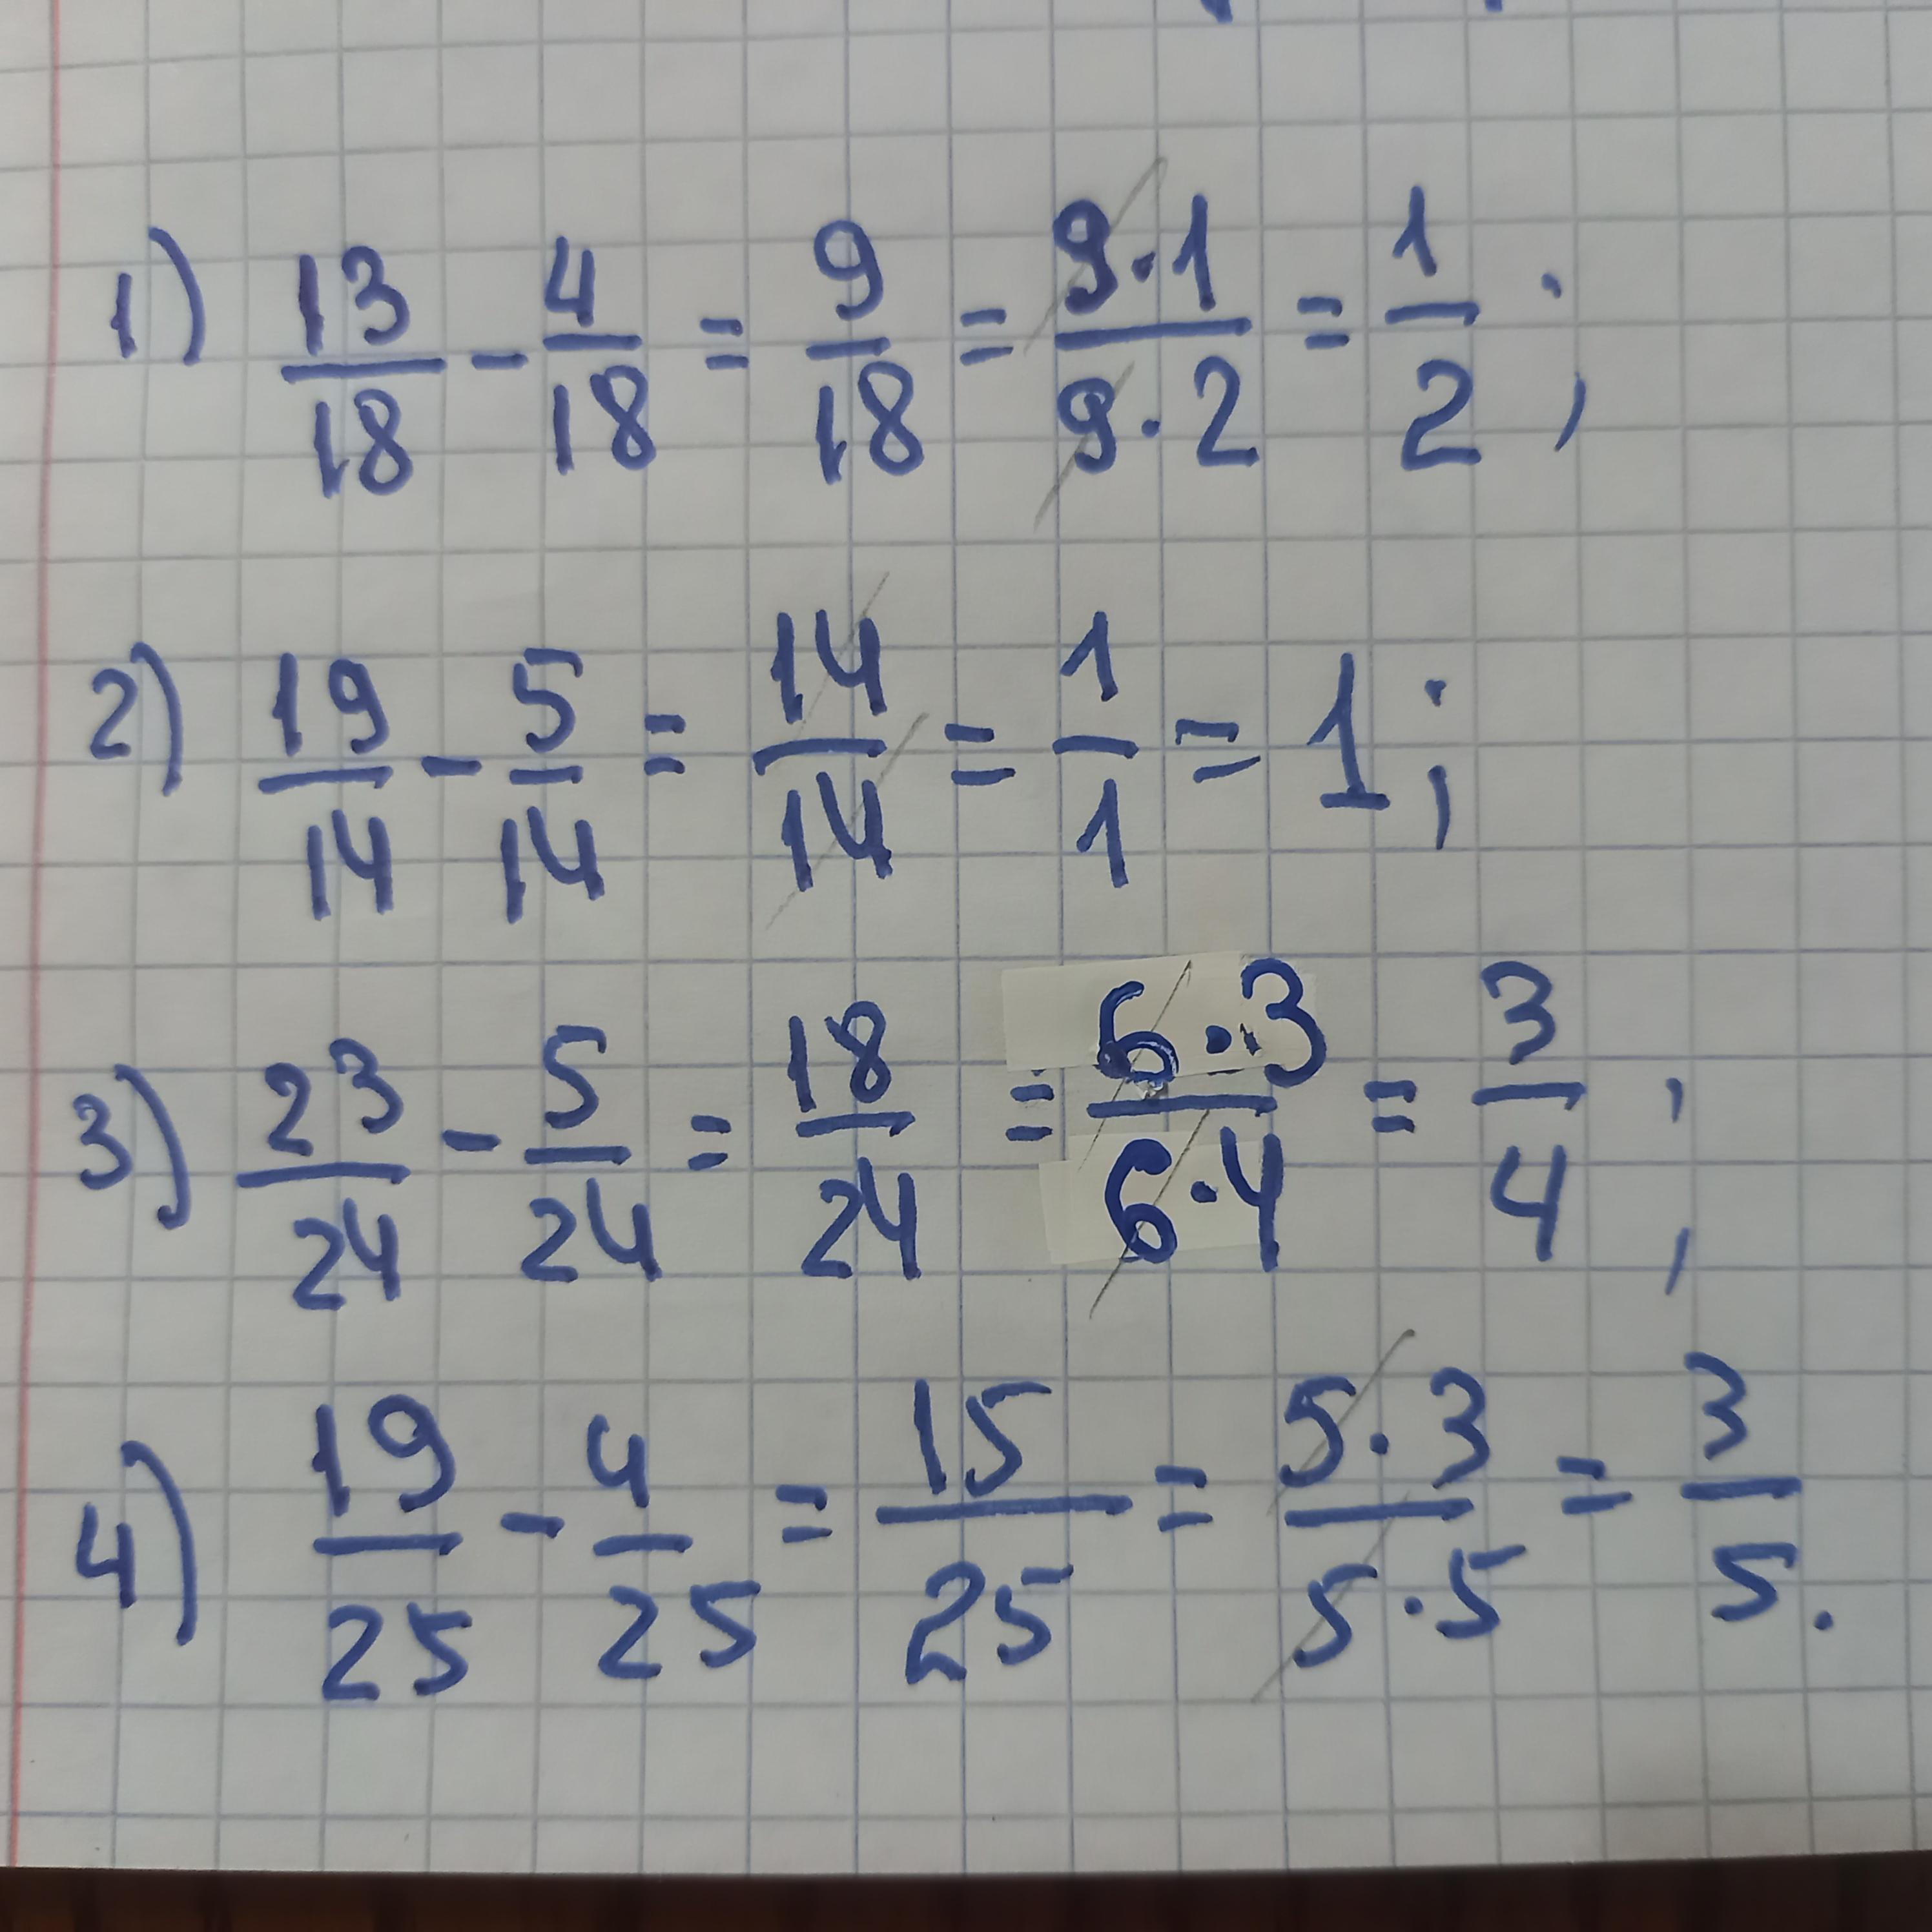 1) 13/18 - 4/18 = 9/18 = 9·1/9·2 = 1/2;
2) 19/14 - 5/14 = 14/14 = 1/1 = 1;
3) 23/24 - 5/24 = 18/24 = 6·3/6·4 = 3/4;
4) 19/25 - 4/25 = 15/25 = 5·3/5·5 = 3/5.